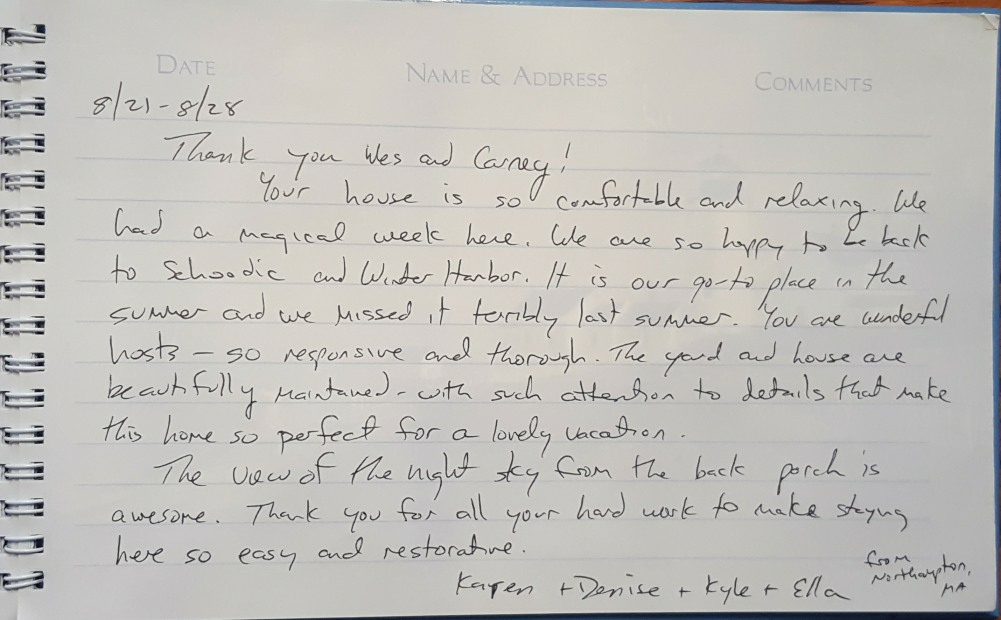 DATE NAME & ADDRESS COMMENTS
8/21 - 8/28
Thank you Wes and Carney!
Your house is so comfortable and relaxing. We
had a magical week here. We are so happy to be back
to Schoodic and Winter Harbor. It is our go-to place in the
summer and we missed it terribly last summer. You are wonderful
hosts - so responsive and thorough. The yard and house are
beautifully maintained - with such attention to details that make
this home so perfect for a lovely vacation.
The view of the night sky from the back porch is
awesome. Thank you for all your hard work to make staying
here so easy and restorative.
Karen + Denise + Kyle + Ella
from
Northampton,
MA